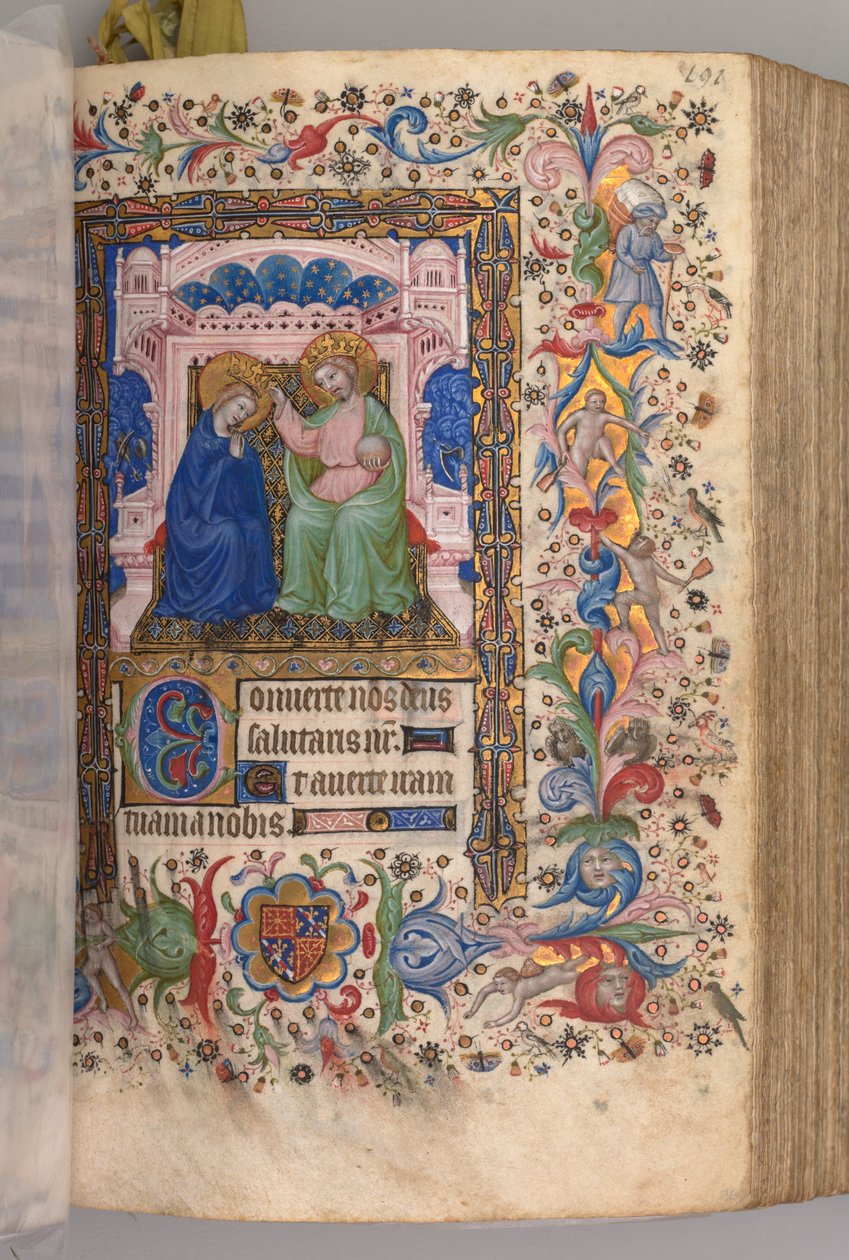 191
Conuerte nos deus
salutaris nr̄.
Et auerte iram
tuam a nobis.